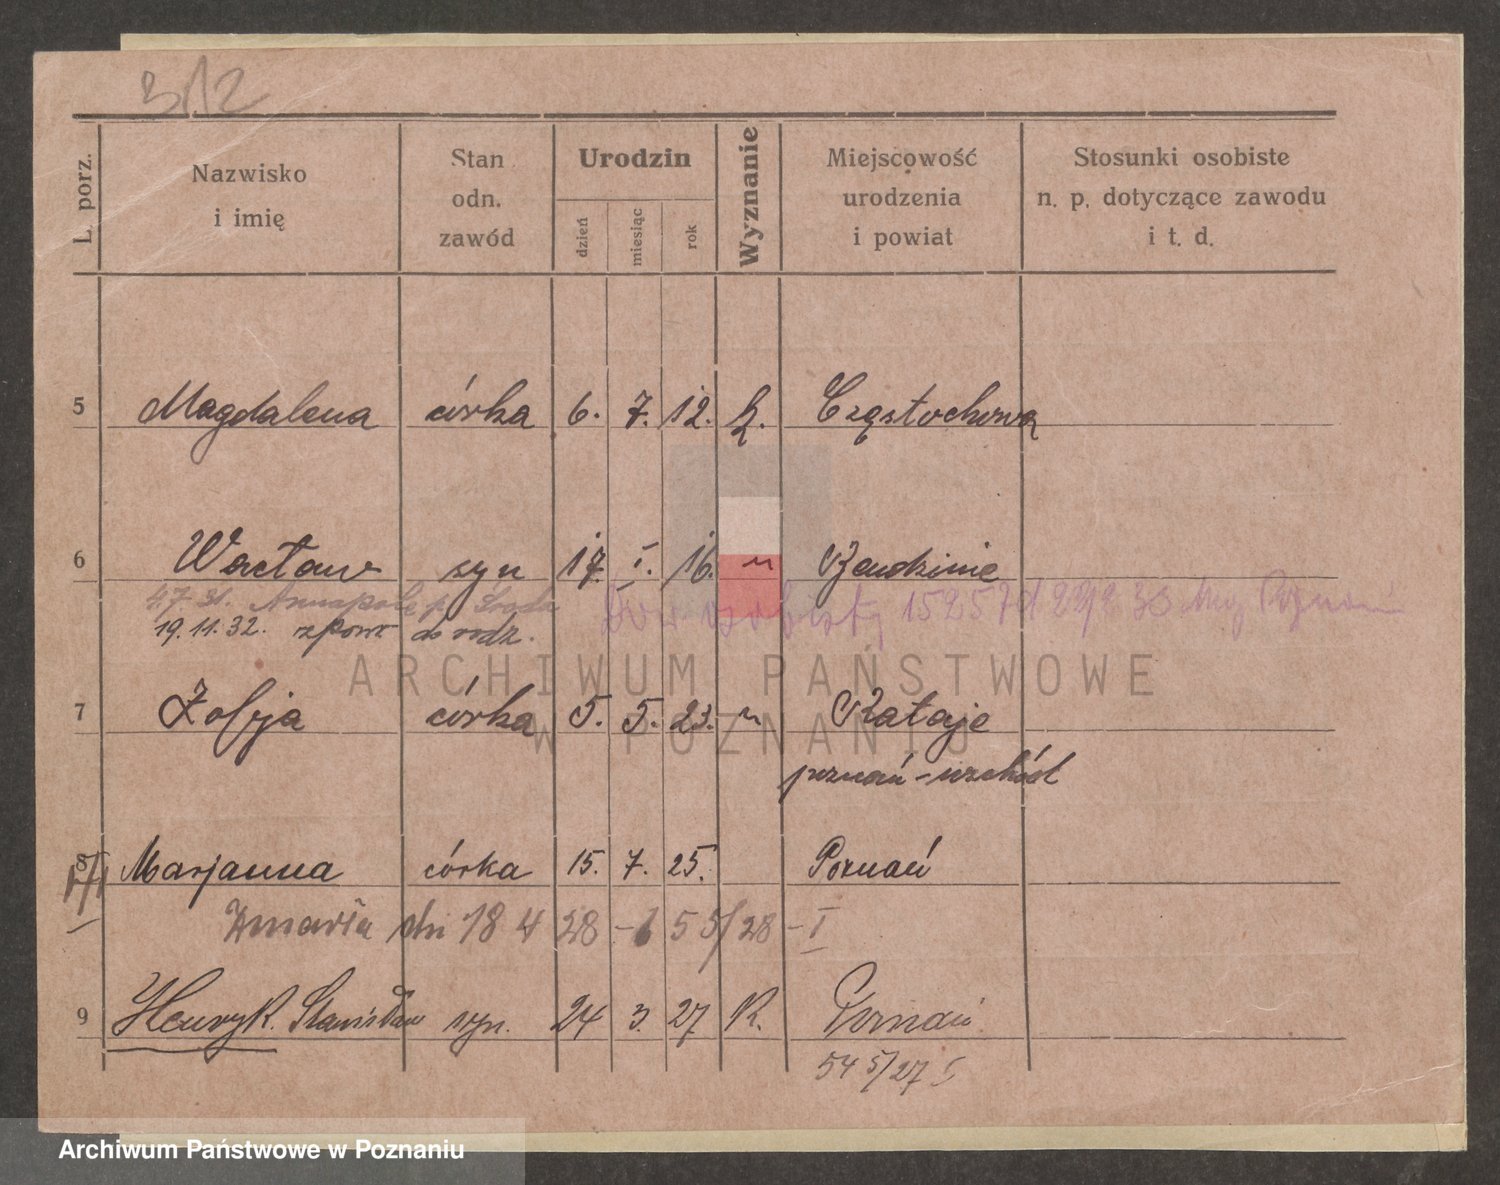 312
L. porz.
Nazwisko i imię
Stan odn. zawód
Urodzin
dzień
miesiąc
rok
Wyznanie
Miejscowość urodzenia i powiat
Stosunki osobiste n. p. dotyczące zawodu i t. d.
5 Magdalena córka 6. 7. 12. k. Częstochowa
6 Wacław syn 17. I. 16. "
4.7.31. Annapole p. Środa
Dow osobisty 15257 Poznań
19.11.32. zpowr do rodz.
ARCHIWUM PAŃSTWOWE
7 Zofja córka 5. 5. 23. " Rataje
W POZNANIU
poznań-wschód
8 Marjanna córka 15. 7. 25. Poznań
Zmarła dn 18 4 28 - 6 55/28 - I
9 Henryk. Stanisław syn. 24 3. 27 K. Poznań
54 5/27
Archiwum Państwowe w Poznaniu